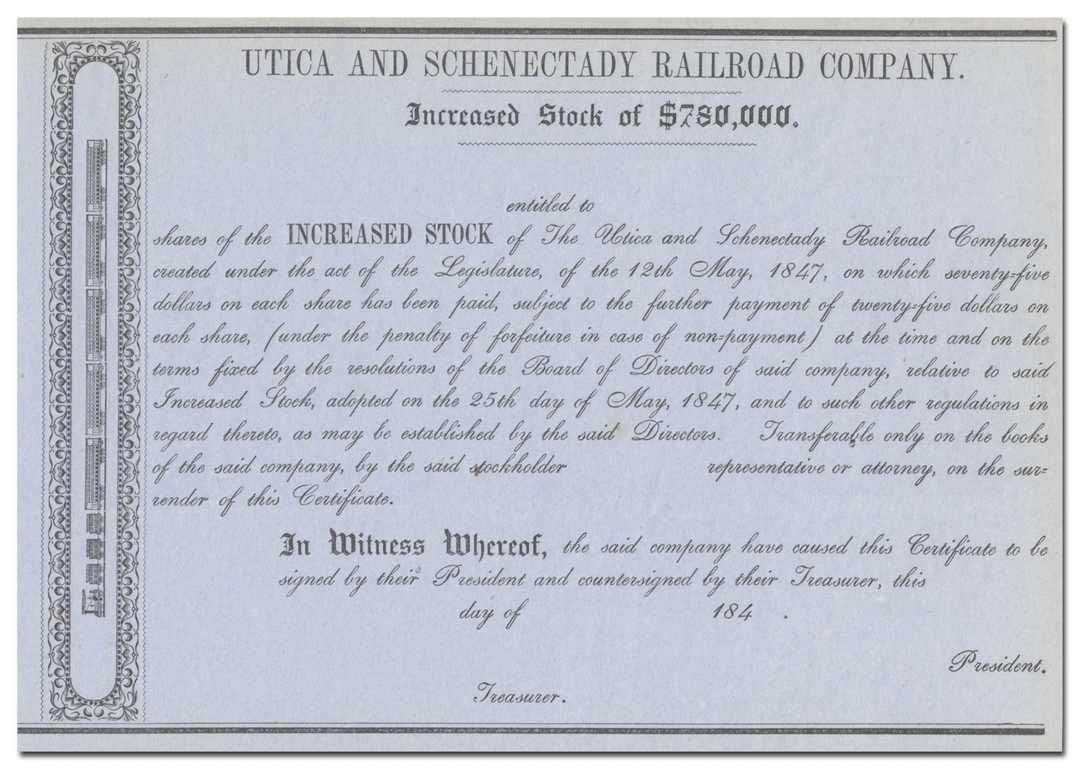 UTICA AND SCHENECTADY RAILROAD COMPANY.
Increased Stock of $780,000.
entitled to
shares of the INCREASED STOCK of The Utica and Schenectady Railroad Company,
created under the act of the Legislature, of the 12th May, 1847, on which seventy-five
dollars on each share has been paid, subject to the further payment of twenty-five dollars on
each share, (under the penalty of forfeiture in case of non-payment) at the time and on the
terms fixed by the resolutions of the Board of Directors of said company, relative to said
Increased Stock, adopted on the 25th day of May, 1847, and to such other regulations in
regard thereto, as may be established by the said Directors. Transferable only on the books
of the said company, by the said stockholder representative or attorney, on the sur-
render of this Certificate.
In Witness Whereof, the said company have caused this Certificate to be
signed by their President and countersigned by their Treasurer, this
day of 184 .
President.
Treasurer.